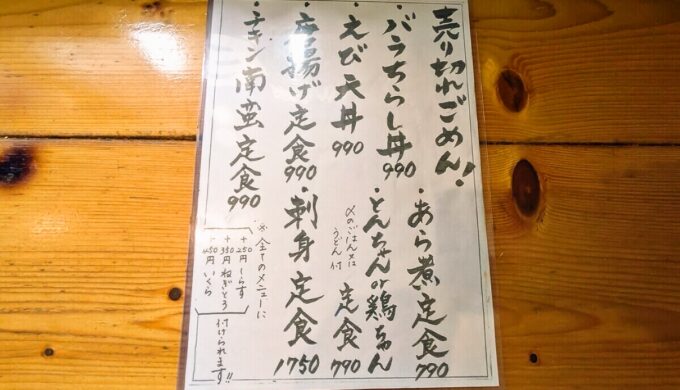 売り切れごめん!
・バラちらし丼 990
・えび天丼 990
・唐揚げ定食 990
・チキン南蛮定食 990
・あら煮定食 790
・とんちゃんor鶏ちゃん
〆のごはん又は
うどん付
定食 790
・刺身定食 1750
※全てのメニューに
+250円 しらす
+350円 ねぎとろ
+450円 いくら
付けられます!!